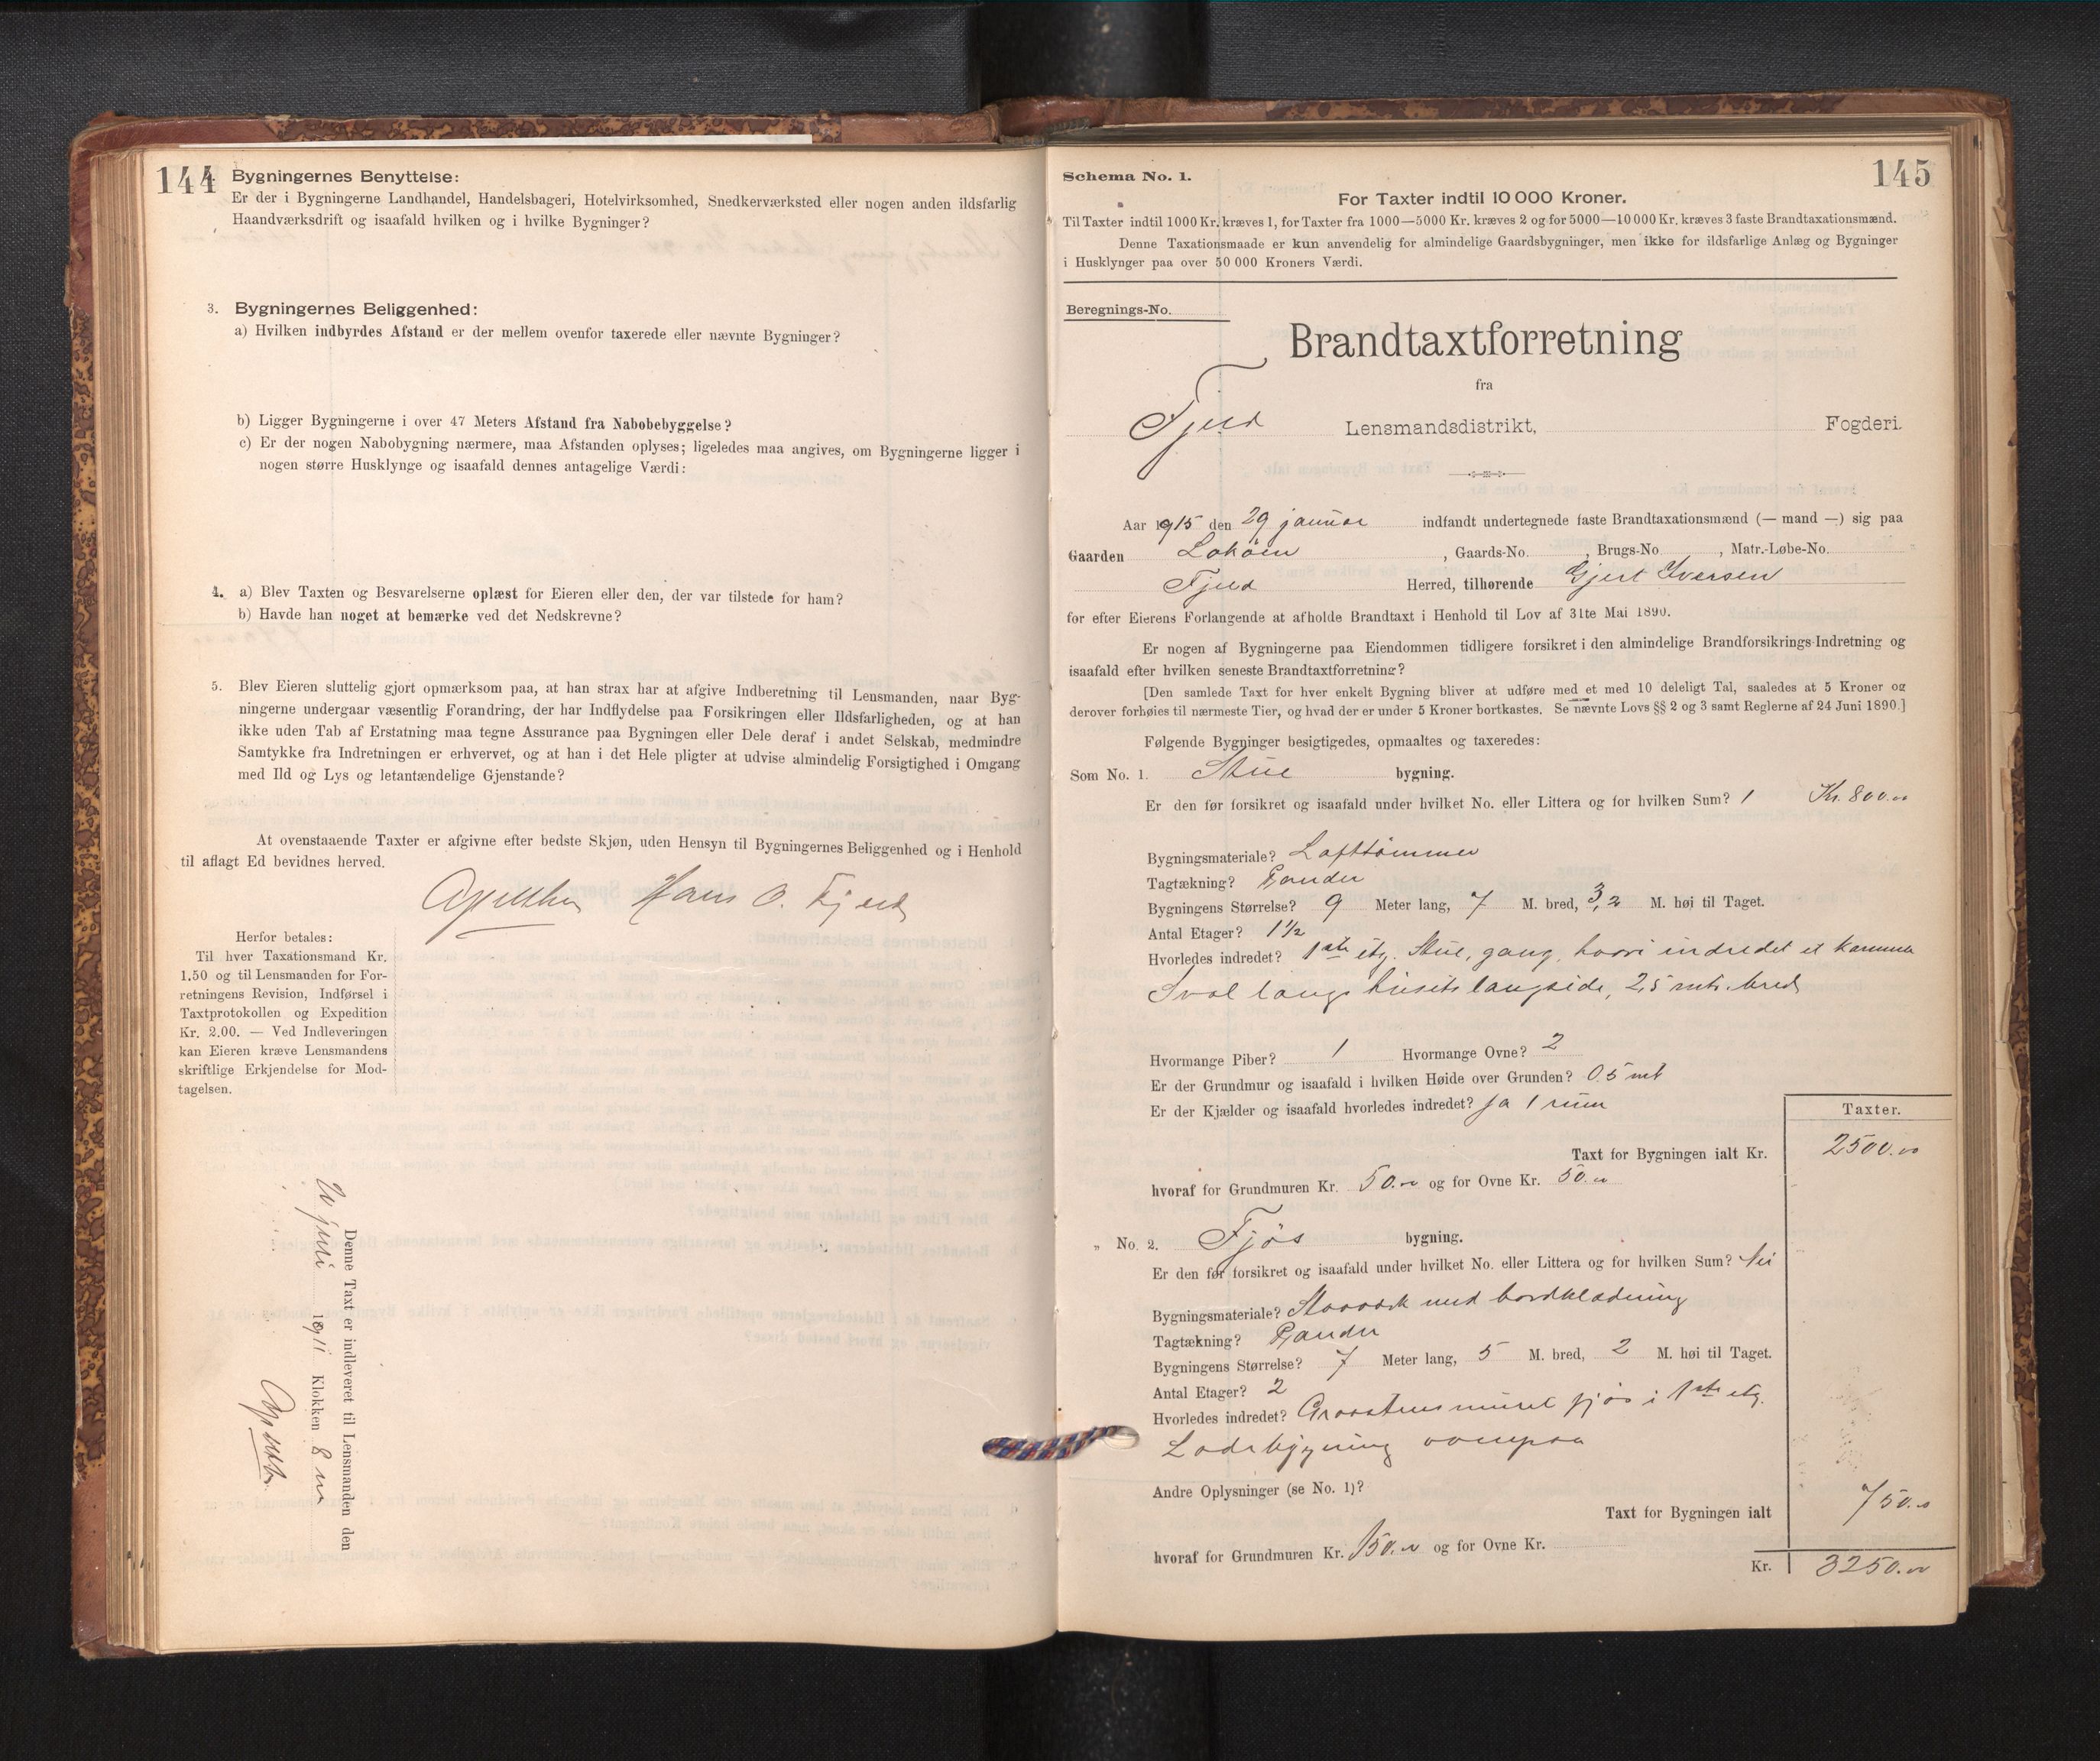 144
Bygningernes Benyttelse:
Er der i Bygningerne Landhandel, Handelsbageri, Hotelvirksomhed, Snedkerværksted eller nogen anden ildsfarlig
Haandværksdrift og isaafald hvilken og i hvilke Bygninger?
3. Bygningernes Beliggenhed:
a) Hvilken indbyrdes Afstand er der mellem ovenfor taxerede eller nævnte Bygninger?
b) Ligger Bygningerne i over 47 Meters Afstand fra Nabobebyggelse?
c) Er der nogen Nabobygning nærmere, maa Afstanden oplyses; ligeledes maa angives, om Bygningerne ligger i
nogen større Husklynge og isaafald dennes antagelige Værdi:
4. a) Blev Taxten og Besvarelserne oplæst for Eieren eller den, der var tilstede for ham?
b) Havde han noget at bemærke ved det Nedskrevne?
5. Blev Eieren sluttelig gjort opmærksom paa, at han strax har at afgive Indberetning til Lensmanden, naar Byg-
ningerne undergaar væsentlig Forandring, der har Indflydelse paa Forsikringen eller Ildsfarligheden, og at han
ikke uden Tab af Erstatning maa tegne Assurance paa Bygningen eller Dele deraf i andet Selskab, medmindre
Samtykke fra Indretningen er erhvervet, og at han i det Hele pligter at udvise almindelig Forsigtighed i Omgang
med Ild og Lys og letantændelige Gjenstande?
At ovenstaaende Taxter er afgivne efter bedste Skjøn, uden Hensyn til Bygningernes Beliggenhed og i Henhold
til aflagt Ed bevidnes herved.
Hans O. Fjeld
Herfor betales:
Til hver Taxationsmand Kr.
1.50 og til Lensmanden for For-
retningens Revision, Indførsel i
Taxtprotokollen og Expedition
Kr. 2.00. — Ved Indleveringen
kan Eieren kræve Lensmandens
skriftlige Erkjendelse for Mod-
tagelsen.
Denne Taxt er indleveret til Lensmanden den
juli 1911 Klokken 8
145
Schema No. 1.
For Taxter indtil 10 000 Kroner.
Til Taxter indtil 1000 Kr. kræves 1, for Taxter fra 1000—5000 Kr. kræves 2 og for 5000—10 000 Kr. kræves 3 faste Brandtaxationsmænd.
Denne Taxationsmaade er kun anvendelig for almindelige Gaardsbygninger, men ikke for ildsfarlige Anlæg og Bygninger
i Husklynger paa over 50 000 Kroners Værdi.
Beregnings-No.
Brandtaxtforretning
fra
Fjeld Lensmandsdistrikt, Fogderi.
Aar 1915 den 29 januar indfandt undertegnede faste Brandtaxationsmænd (— mand —) sig paa
Gaarden Lokøen, Gaards-No. , Brugs-No. , Matr.-Løbe-No.
Fjeld Herred, tilhørende Gjert Iversen
for efter Eierens Forlangende at afholde Brandtaxt i Henhold til Lov af 31te Mai 1890.
Er nogen af Bygningerne paa Eiendommen tidligere forsikret i den almindelige Brandforsikrings-Indretning og
isaafald efter hvilken seneste Brandtaxtforretning?
[Den samlede Taxt for hver enkelt Bygning bliver at udføre med et med 10 deleligt Tal, saaledes at 5 Kroner og
derover forhøies til nærmeste Tier, og hvad der er under 5 Kroner bortkastes. Se nævnte Lovs §§ 2 og 3 samt Reglerne af 24 Juni 1890.]
Følgende Bygninger besigtigedes, opmaaltes og taxeredes:
Som No. 1. Stue bygning.
Er den før forsikret og isaafald under hvilket No. eller Littera og for hvilken Sum? 1 Kr. 800.00
Bygningsmateriale? Lafttømmer
Tagtækning? Pander
Bygningens Størrelse? 9 Meter lang, 7 M. bred, 3,2 M. høi til Taget.
Antal Etager? 1½
Hvorledes indredet? 1ste etg. Stue, gang, hvori indredet et kammer
Sval langs husets langside, 2,5 mtr. bred
Hvormange Piber? 1 Hvormange Ovne? 2
Er der Grundmur og isaafald i hvilken Høide over Grunden? 0,5 mt
Er der Kjælder og isaafald hvorledes indredet? ja 1 rum
Taxter.
Taxt for Bygningen ialt Kr. 2500.00
hvoraf for Grundmuren Kr. 50.00 og for Ovne Kr. 50.00
„ No. 2. Fjøs bygning.
Er den før forsikret og isaafald under hvilket No. eller Littera og for hvilken Sum? Nei
Bygningsmateriale? med bordklædning
Tagtækning? Pander
Bygningens Størrelse? 7 Meter lang, 5 M. bred, 2 M. høi til Taget.
Antal Etager? 2
Hvorledes indredet? Graastensmuret fjøs i 1ste etg.
Ladebygning ovenpaa
Andre Oplysninger (se No. 1)?
Taxt for Bygningen ialt 750.00
hvoraf for Grundmuren Kr. 150.00 og for Ovne Kr.
Kr. 3250.00